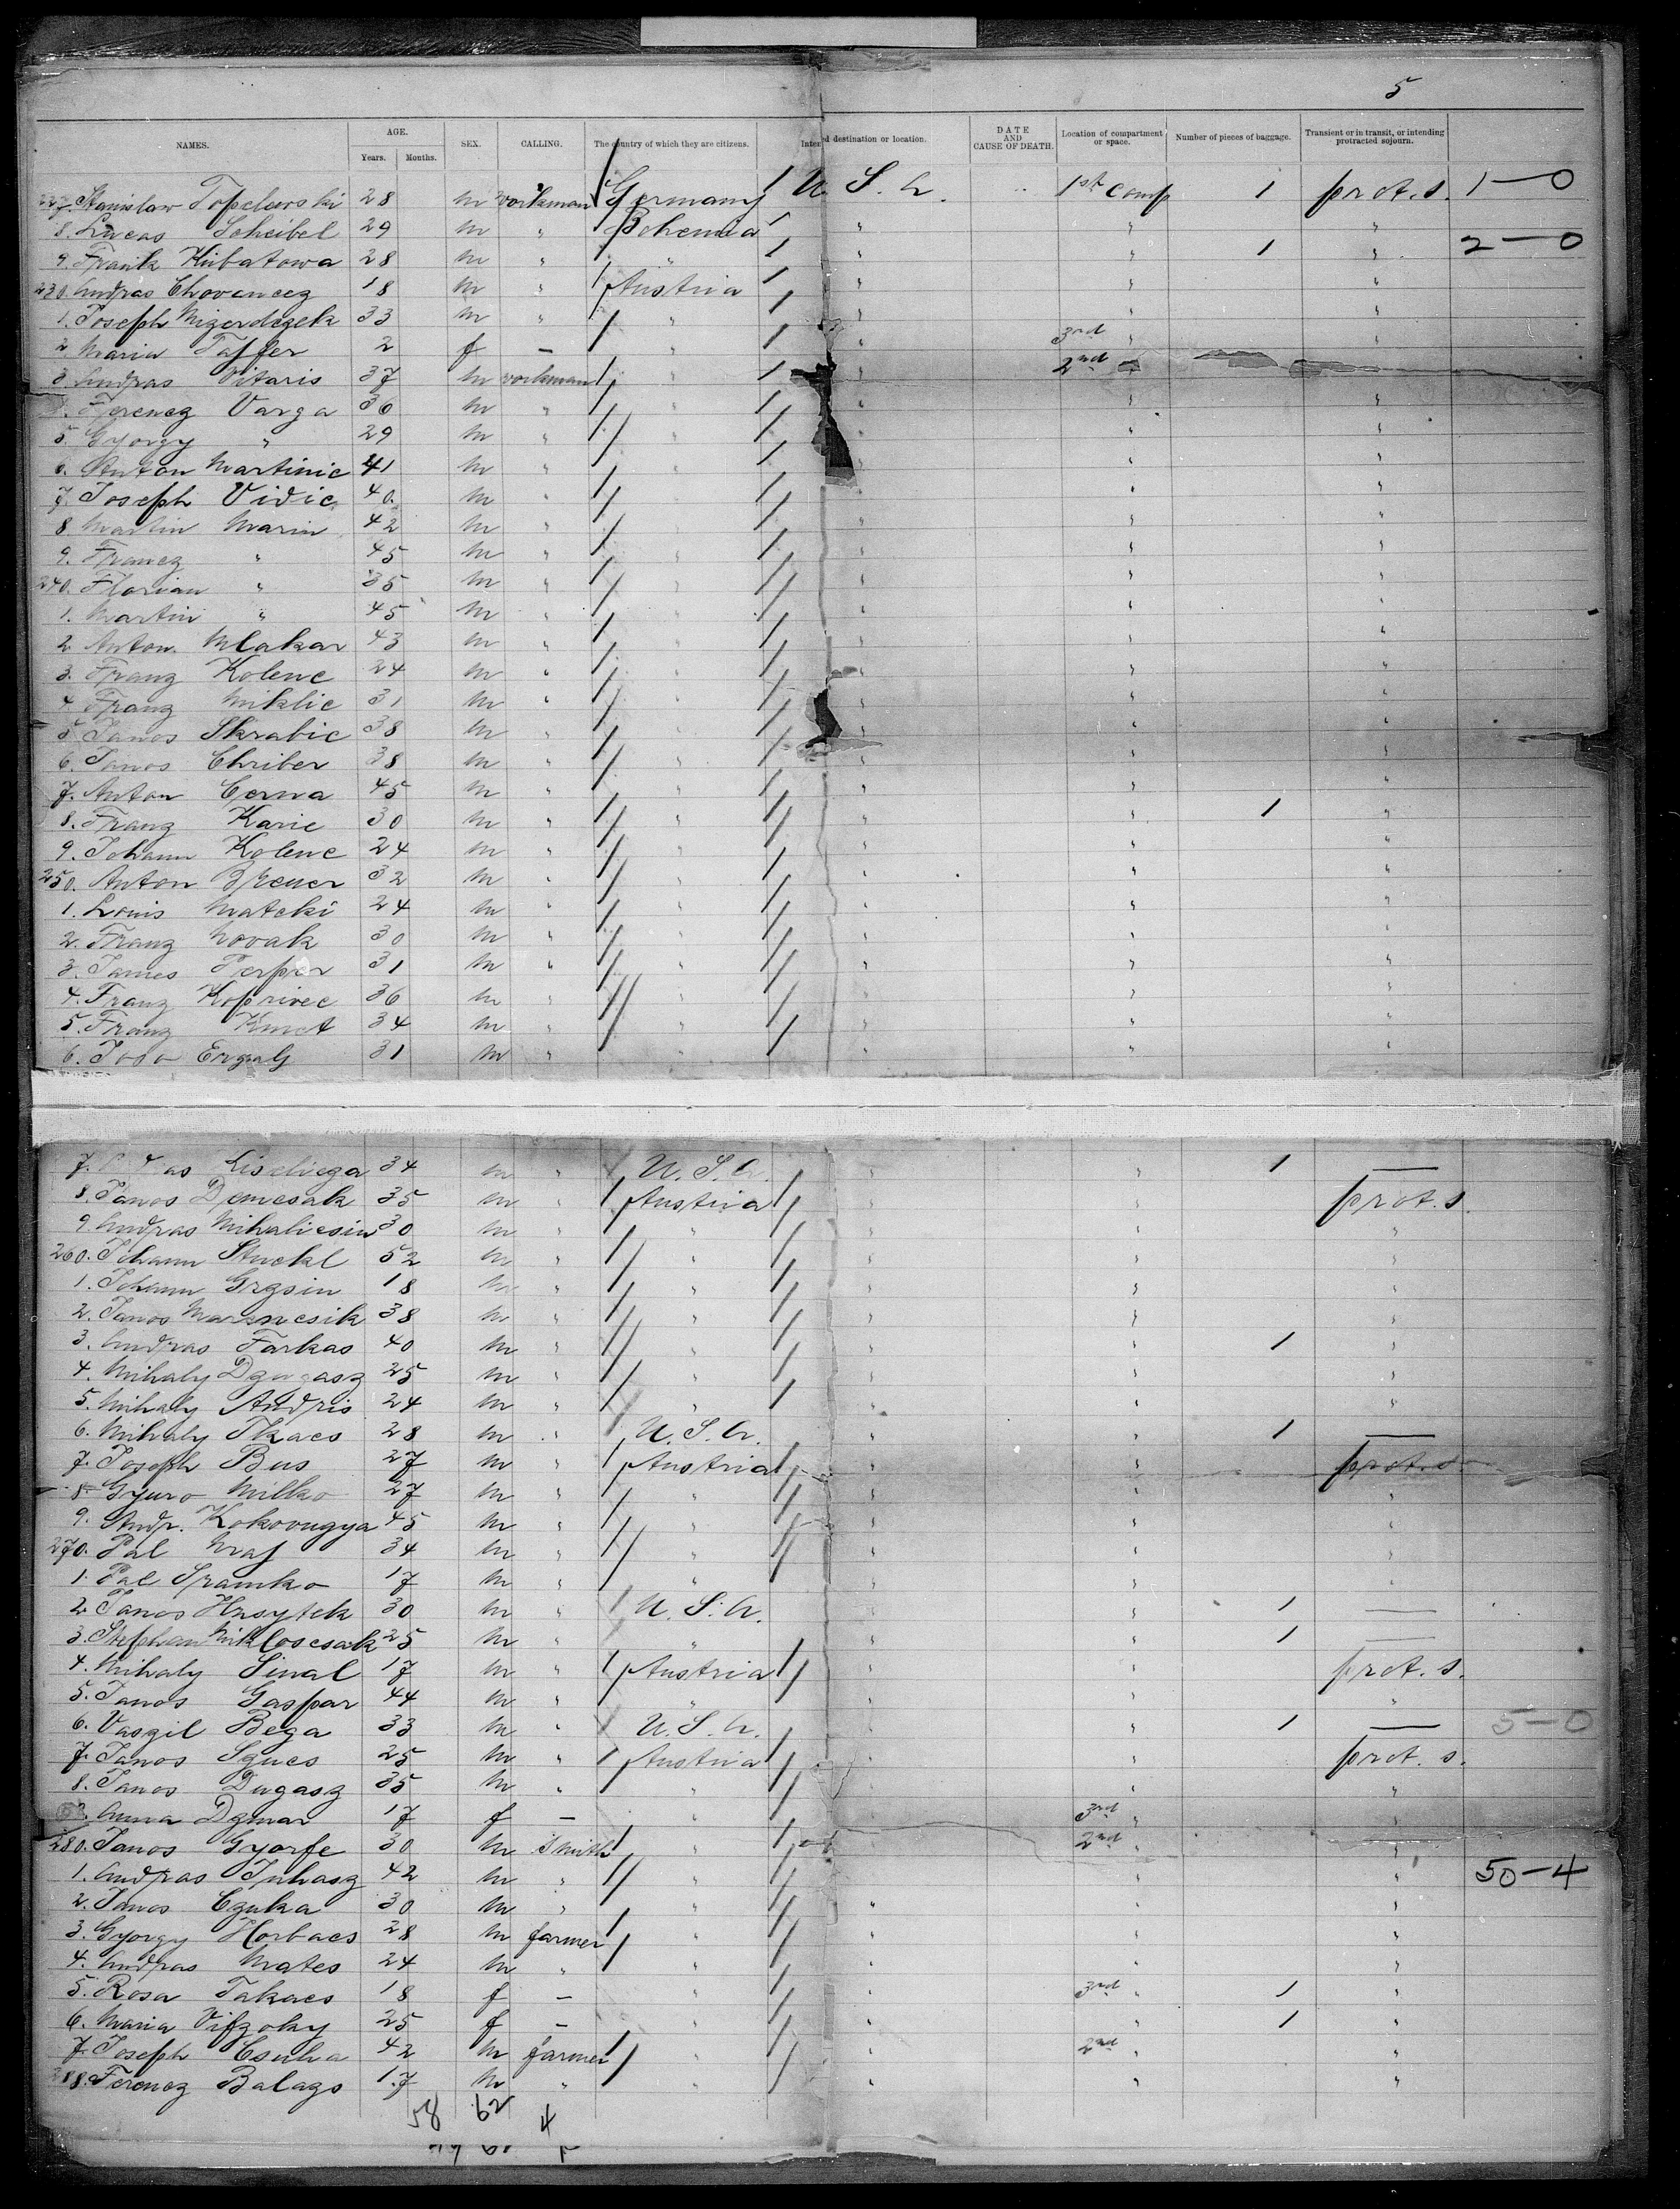 5
NAMES. AGE. Years. Months. SEX. CALLING. The country of which they are citizens. Inten d destination or location. DATE AND CAUSE OF DEATH. Location of compartment or space. Number of pieces of baggage. Transient or in transit, or intending protracted sojourn.
227. Stanislaw Topelewski 28 m workman Germany U. S. A. 1st comp 1 prot. s. 1-0
8. Lucas Scheibel 29 m " Bohemia " " "
9. Frank Kubatowa 28 m " " " " 1 " 2-0
230. Andras Chovancez 18 m " Austria " " "
1. Joseph Mizerdezek 33 m " " " " "
2 Maria Taffer 2 f - " " 3rd " "
3 Andras Vitaris 37 m workman " " 2nd "
4. Ferencz Varga 36 m " " " " "
5. Gyorgy " 29 m " " " " "
6. Anton Martinic 41 m " " " " "
7. Joseph Vidic 40. m " " " " "
8 Martin Marin 42 m " " " " "
9. Francz " 45 m " " " " "
240. Florian " 35 m " " " " "
1. Martin " 45 m " " " " "
2 Anton Mlakar 43 m " " " " "
3. Franz Kolenc 24 m " " " " "
4. Franz Miklic 31 m " " " " "
5 Janos Skrabic 38 m " " " " "
6. Janos Chriber 38 m " " " " "
7. Anton Cerna 45 m " " " " "
8. Franz Karic 30 m " " " " 1 "
9. Johann Kolenc 24 m " " " " "
250. Anton Breuer 32 m " " " " "
1. Louis Matcki 24 m " " " " "
2. Franz Novak 30 m " " " " "
3. James 31 m " " " " "
4. Franz Koprivec 36 m " " " " "
5. Franz Kmet 34 m " " " " "
6. Joso 31 m " " " " "
7. 34 m " U. S. A. " " 1 —
8. Janos Demcsak 35 m " Austria " " prot. s.
9 Andras Mihalicsin 30 m " " " " "
260. Johann Stuckl 52 m " " " " "
1. Johann Grgsin 18 m " " " " "
2. Janos 38 m " " " " "
3. Andras Farkas 40 m " " " " 1 "
4. Mihaly 25 m " " " " "
5. Mihaly Andris 24 m " " " " "
6. Mihaly Tkacs 28 m " U. S. A. " " 1 —
7. Joseph Bus 27 m " Austria " " prot. s.
8. Gyuro Milko 27 m " " " " "
9. Andr. Kokovugya 45 m " " " " "
270. Pal Maj 34 m " " " " "
1. Pal Sramko 17 m " " " " "
2 Janos Hrsytek 30 m " U. S. A. " " 1 —
3. Stephan Miklosesak 25 m " " " " 1 —
4. Mihaly Sinal 17 m " Austria " " prot. s.
5. Janos Gaspar 44 m " " " " "
6. Vaszil Bega 33 m " U. S. A. " " 1 — 5-0
7. Janos Szucs 25 m " Austria " " prot. s.
8. Janos Dugasz 35 m " " " " "
Anna Dzmar 17 f - " 3rd " "
280. Janos Gyorfe 30 m smith " 2nd " "
1. Andras Juhasz 42 m " " " " 50-4
2. Janos Czuka 30 m " " " " "
3. Gyorgy Horbacs 28 m farmer " " " "
4. Andras Mates 24 m " " " " "
5. Rosa Takacs 18 f - " " 3rd " 1 "
6. Maria Vifzoky 25 f - " " " 1 "
7 Joseph Csuha 42 m farmer " " 2nd " "
288. Ferencz Balazs 17 m " " " " "
58 62 4